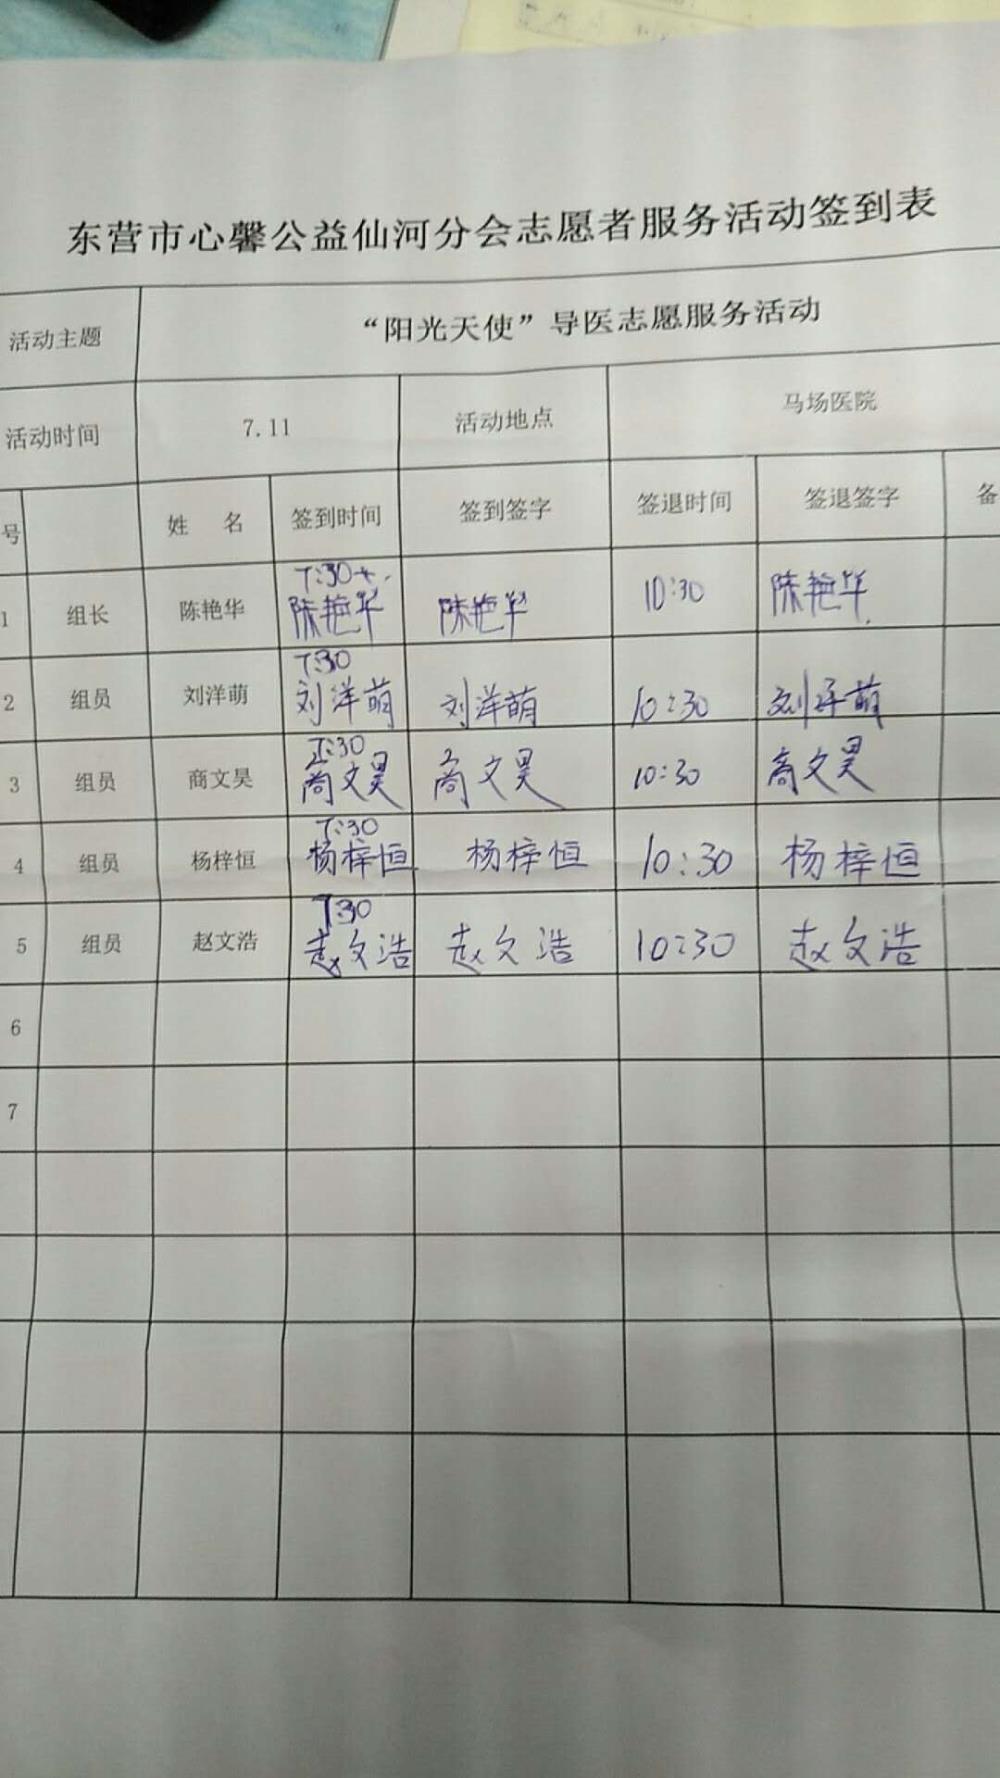 东营市心馨公益仙河分会志愿者服务活动签到表
活动主题 “阳光天使”导医志愿服务活动
活动时间 7.11 活动地点 马场医院
号 姓 名 签到时间 签到签字 签退时间 签退签字 备
1 组长 陈艳华 7:30 陈艳华 陈艳华 10:30 陈艳华
2 组员 刘洋萌 7:30 刘洋萌 刘洋萌 10:30 刘洋萌
3 组员 商文昊 7:30 商文昊 商文昊 10:30 商文昊
4 组员 杨梓恒 7:30 杨梓恒 杨梓恒 10:30 杨梓恒
5 组员 赵文浩 7:30 赵文浩 赵文浩 10:30 赵文浩
6
7